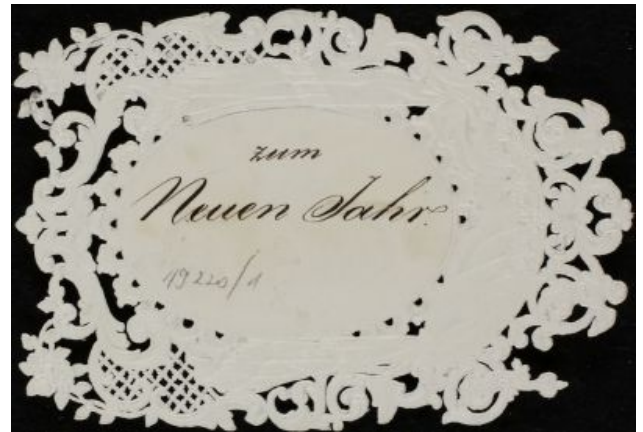 zum
Neuen Jahr.
19220/1